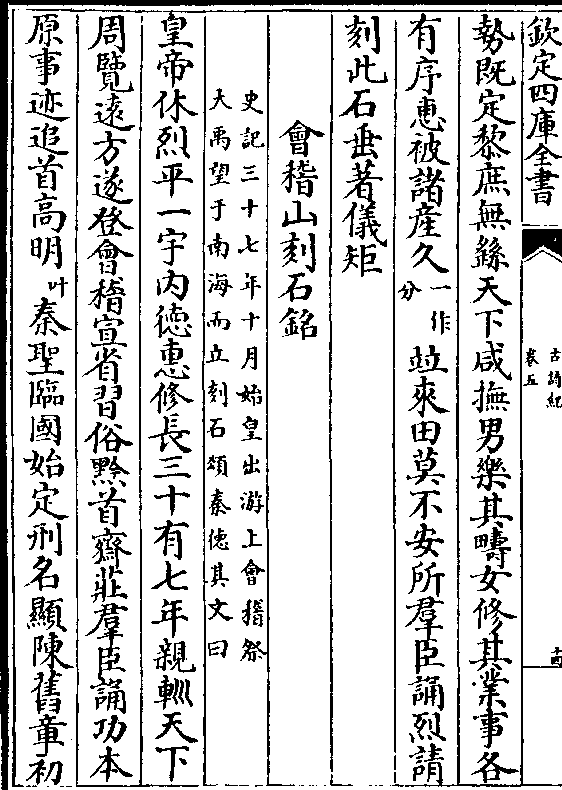 欽定四庫全書
古詩紀
卷五
十四
勢既定黎庶無繇天下咸撫男樂其疇女修其業事各
有序惠被諸產久一作分竝來田莫不安所羣臣誦烈請
刻此石垂著儀矩
會稽山刻石銘
史記三十七年十月始皇出游上會稽祭
大禹望于南海而立刻石頌秦德其文曰
皇帝休烈平一宇內德惠修長三十有七年親輙天下
周覽遠方遂登會稽宣省習俗黔首齋莊羣臣誦功本
原事迹追首高明叶秦聖臨國始定刑名顯陳舊章初